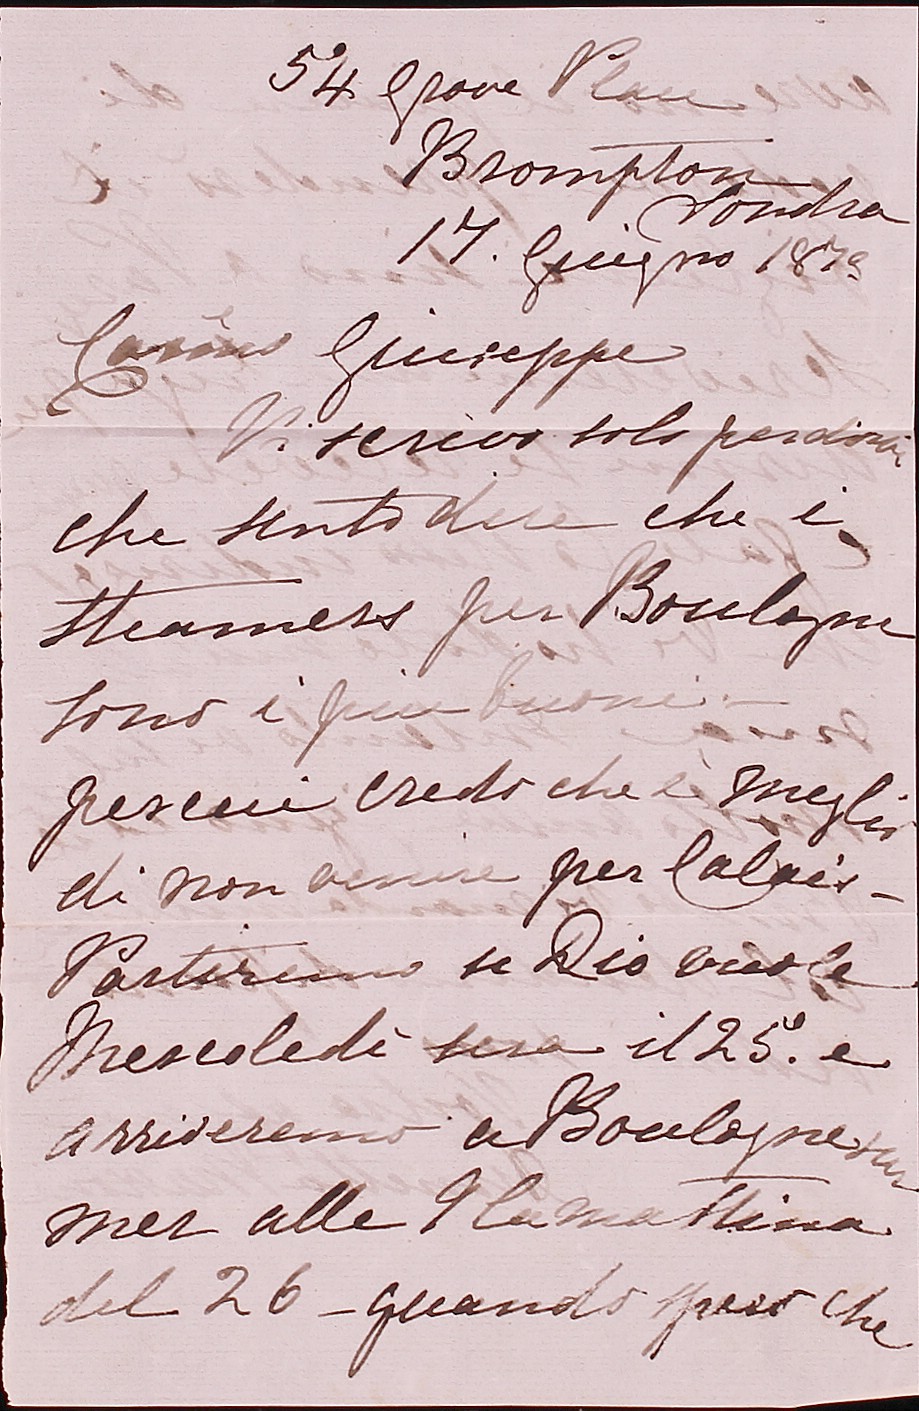 54 Grove Place
Brompton
Londra
17. Giugno 1879
Carimo Giuseppe
Vi scrivo solo per dirvi
che sento dire che i
steamers per Boulogne
sono i piu buoni -
per cui credo che è meglio
di non venire per Calais -
Partiremo se Dio vuole
Mercoledì sera il 25. e
arriveremo a Boulogne sur
mer alle 9 la mattina
del 26 - quando spero che